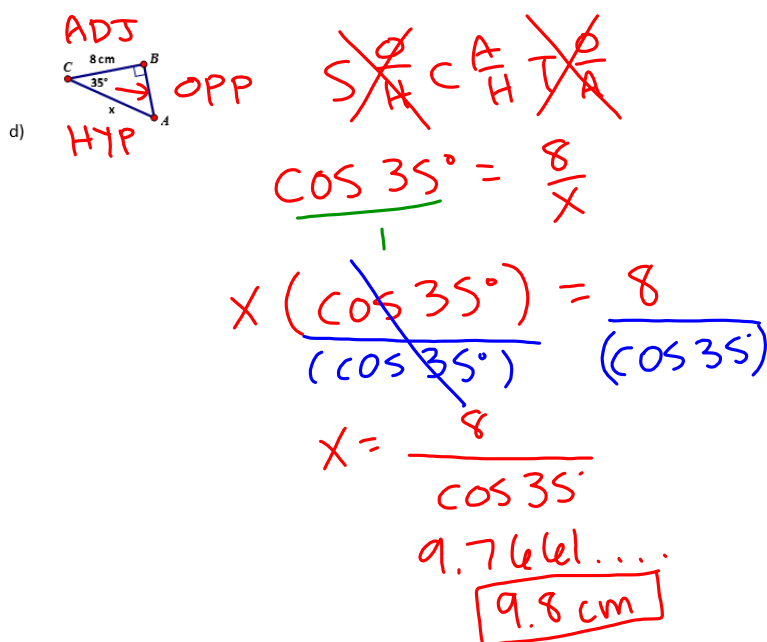 ADJ
8 cm B
C
35°
OPP
x
A
d)
HYP
S O/H C A/H T O/A
cos 35° = 8/x
1
x (cos 35°) = 8
(cos 35°) (cos 35°)
x = 8
cos 35°
9.7661.....
9.8 cm